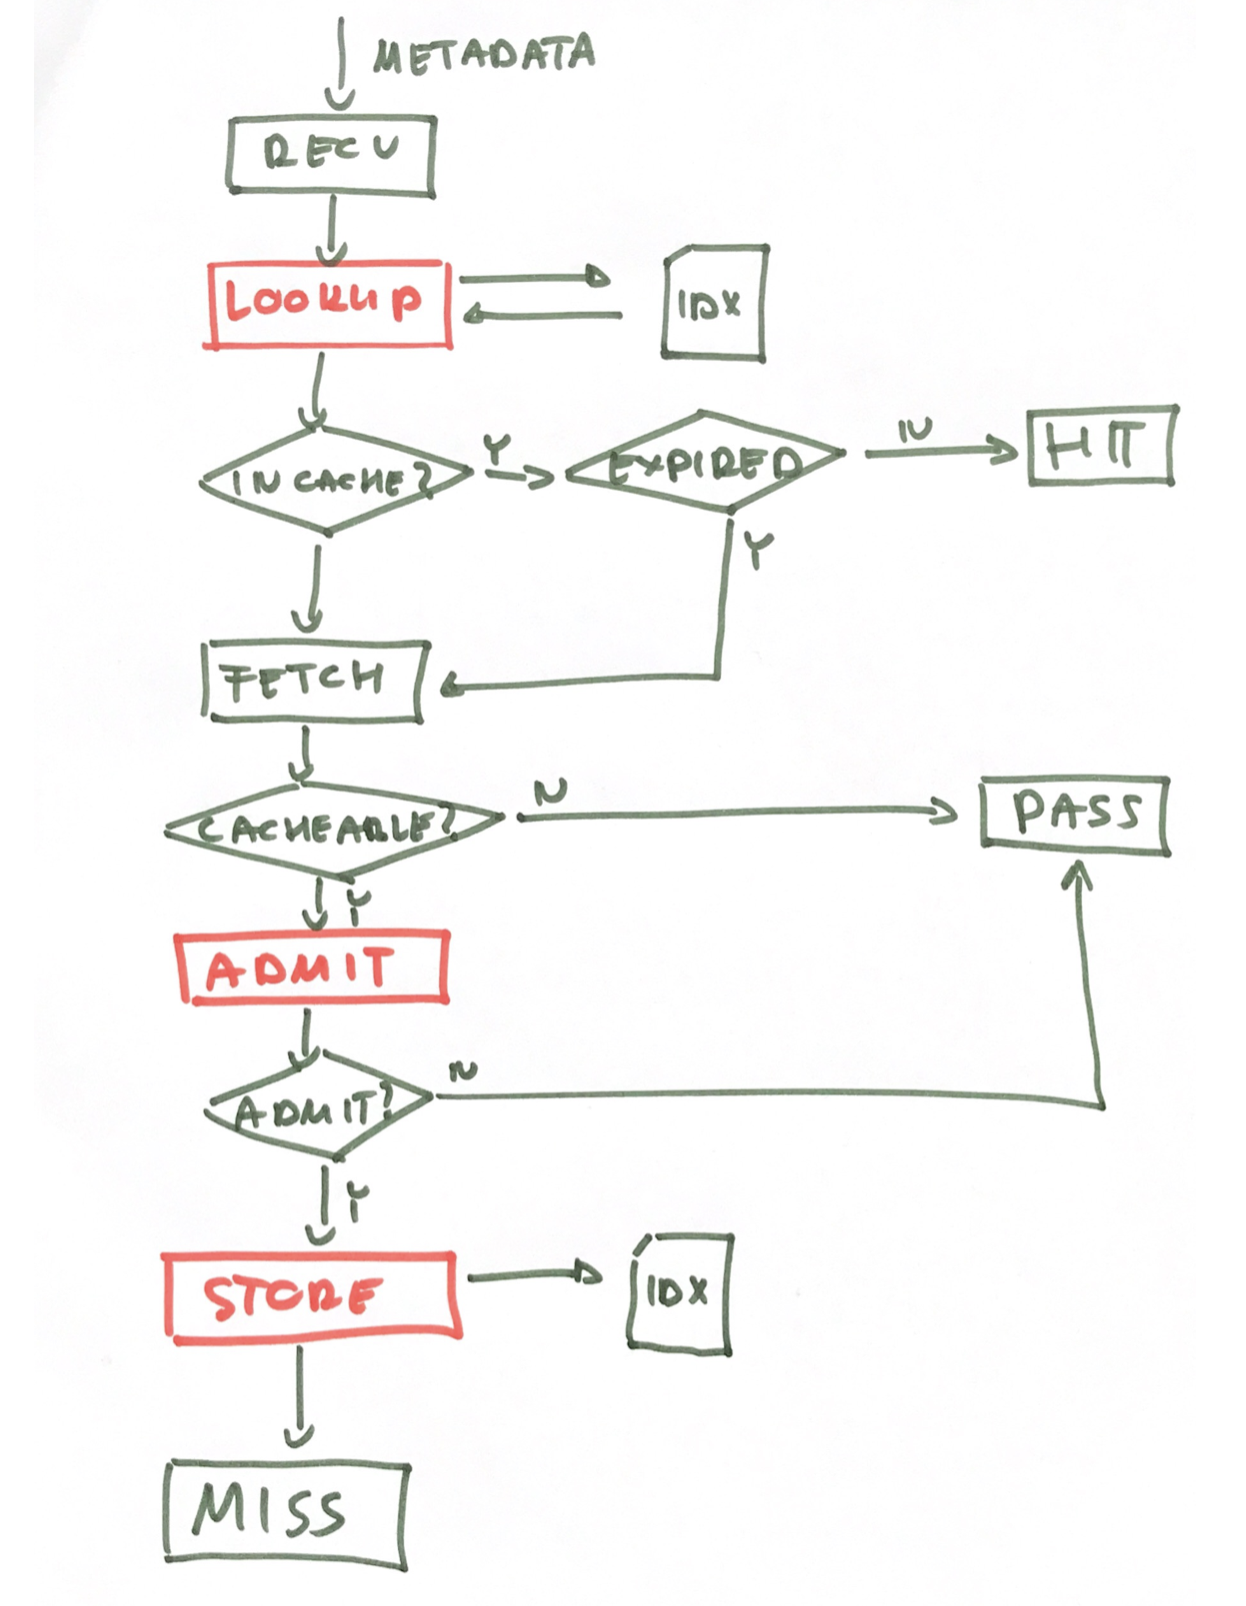 METADATA
RECV
LOOKUP
IDX
IN CACHE?
Y
EXPIRED
N
HIT
Y
FETCH
CACHEABLE?
N
PASS
Y
ADMIT
ADMIT?
N
Y
STORE
IDX
MISS